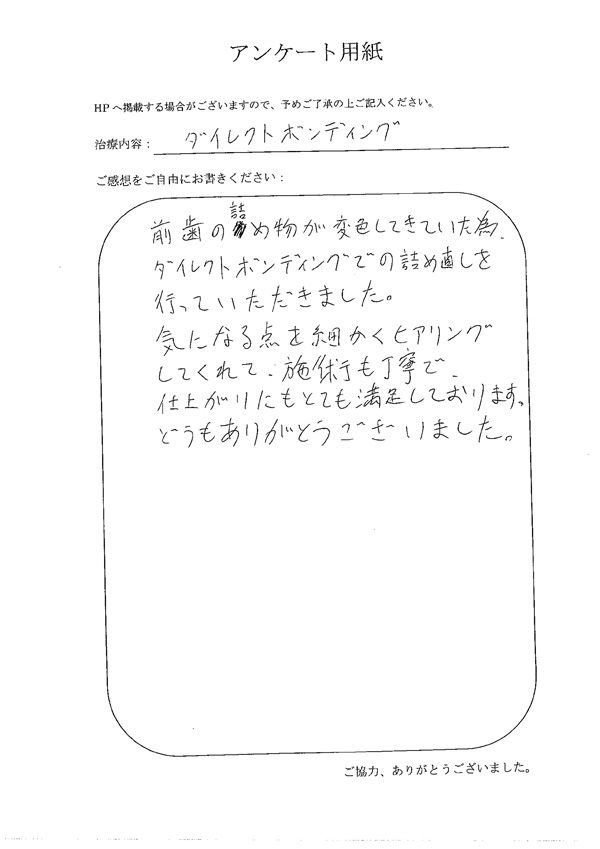 アンケート用紙
HPへ掲載する場合がございますので、予めご了承の上ご記入ください。
治療内容： ダイレクトボンディング
ご感想をご自由にお書きください：
前歯の詰め物が変色してきていた為、
ダイレクトボンディングでの詰め直しを
行っていただきました。
気になる点を細かくヒアリング
してくれて、施術も丁寧で、
仕上がりにもとても満足しております。
どうもありがとうございました。
ご協力、ありがとうございました。